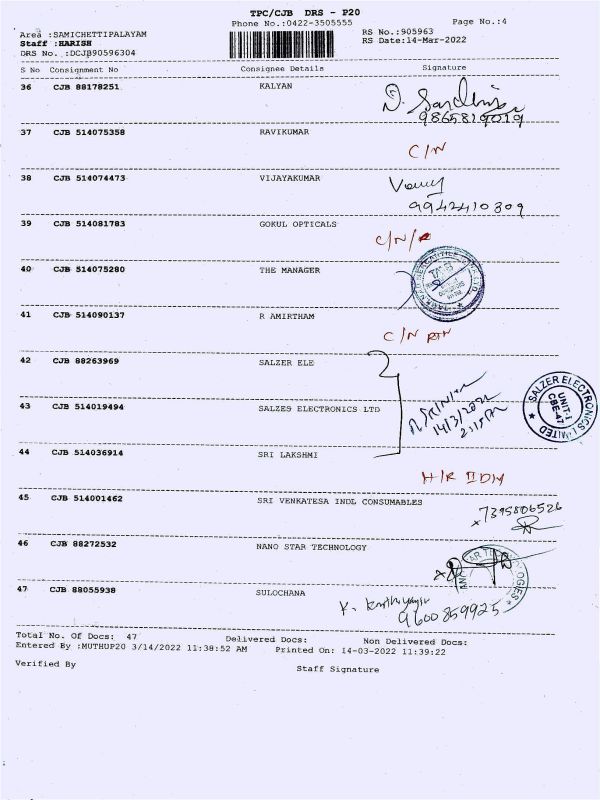 TPC/CJB DRS - P20
Phone No.:0422-3505555
Page No.:4
Area :SAMICHETTIPALAYAM
RS No.:905963
Staff :HARISH
RS Date:14-Mar-2022
DRS No. :DCJB90596304
S No Consignment No Consignee Details Signature
36 CJB 88178251 KALYAN
9865819019
37 CJB 514075358 RAVIKUMAR
C/N
38 CJB 514074473 VIJAYAKUMAR
9942410309
39 CJB 514081783 GOKUL OPTICALS
C/N/R
40 CJB 514075280 THE MANAGER
41 CJB 514090137 R AMIRTHAM
C/N RTN
42 CJB 88263969 SALZER ELE
43 CJB 514019494 SALZES ELECTRONICS LTD
14/3/2022
2:15PM
SALZER ELECTRONICS LIMITED
UNIT-I
CBE-47
44 CJB 514036914 SRI LAKSHMI
45 CJB 514001462 SRI VENKATESA INDL CONSUMABLES
7395806526
46 CJB 88272532 NANO STAR TECHNOLOGY
47 CJB 88055938 SULOCHANA
9600859925
Total No. Of Docs: 47 Delivered Docs: Non Delivered Docs:
Entered By :MUTHUP20 3/14/2022 11:38:52 AM Printed On: 14-03-2022 11:39:22
Verified By Staff Signature